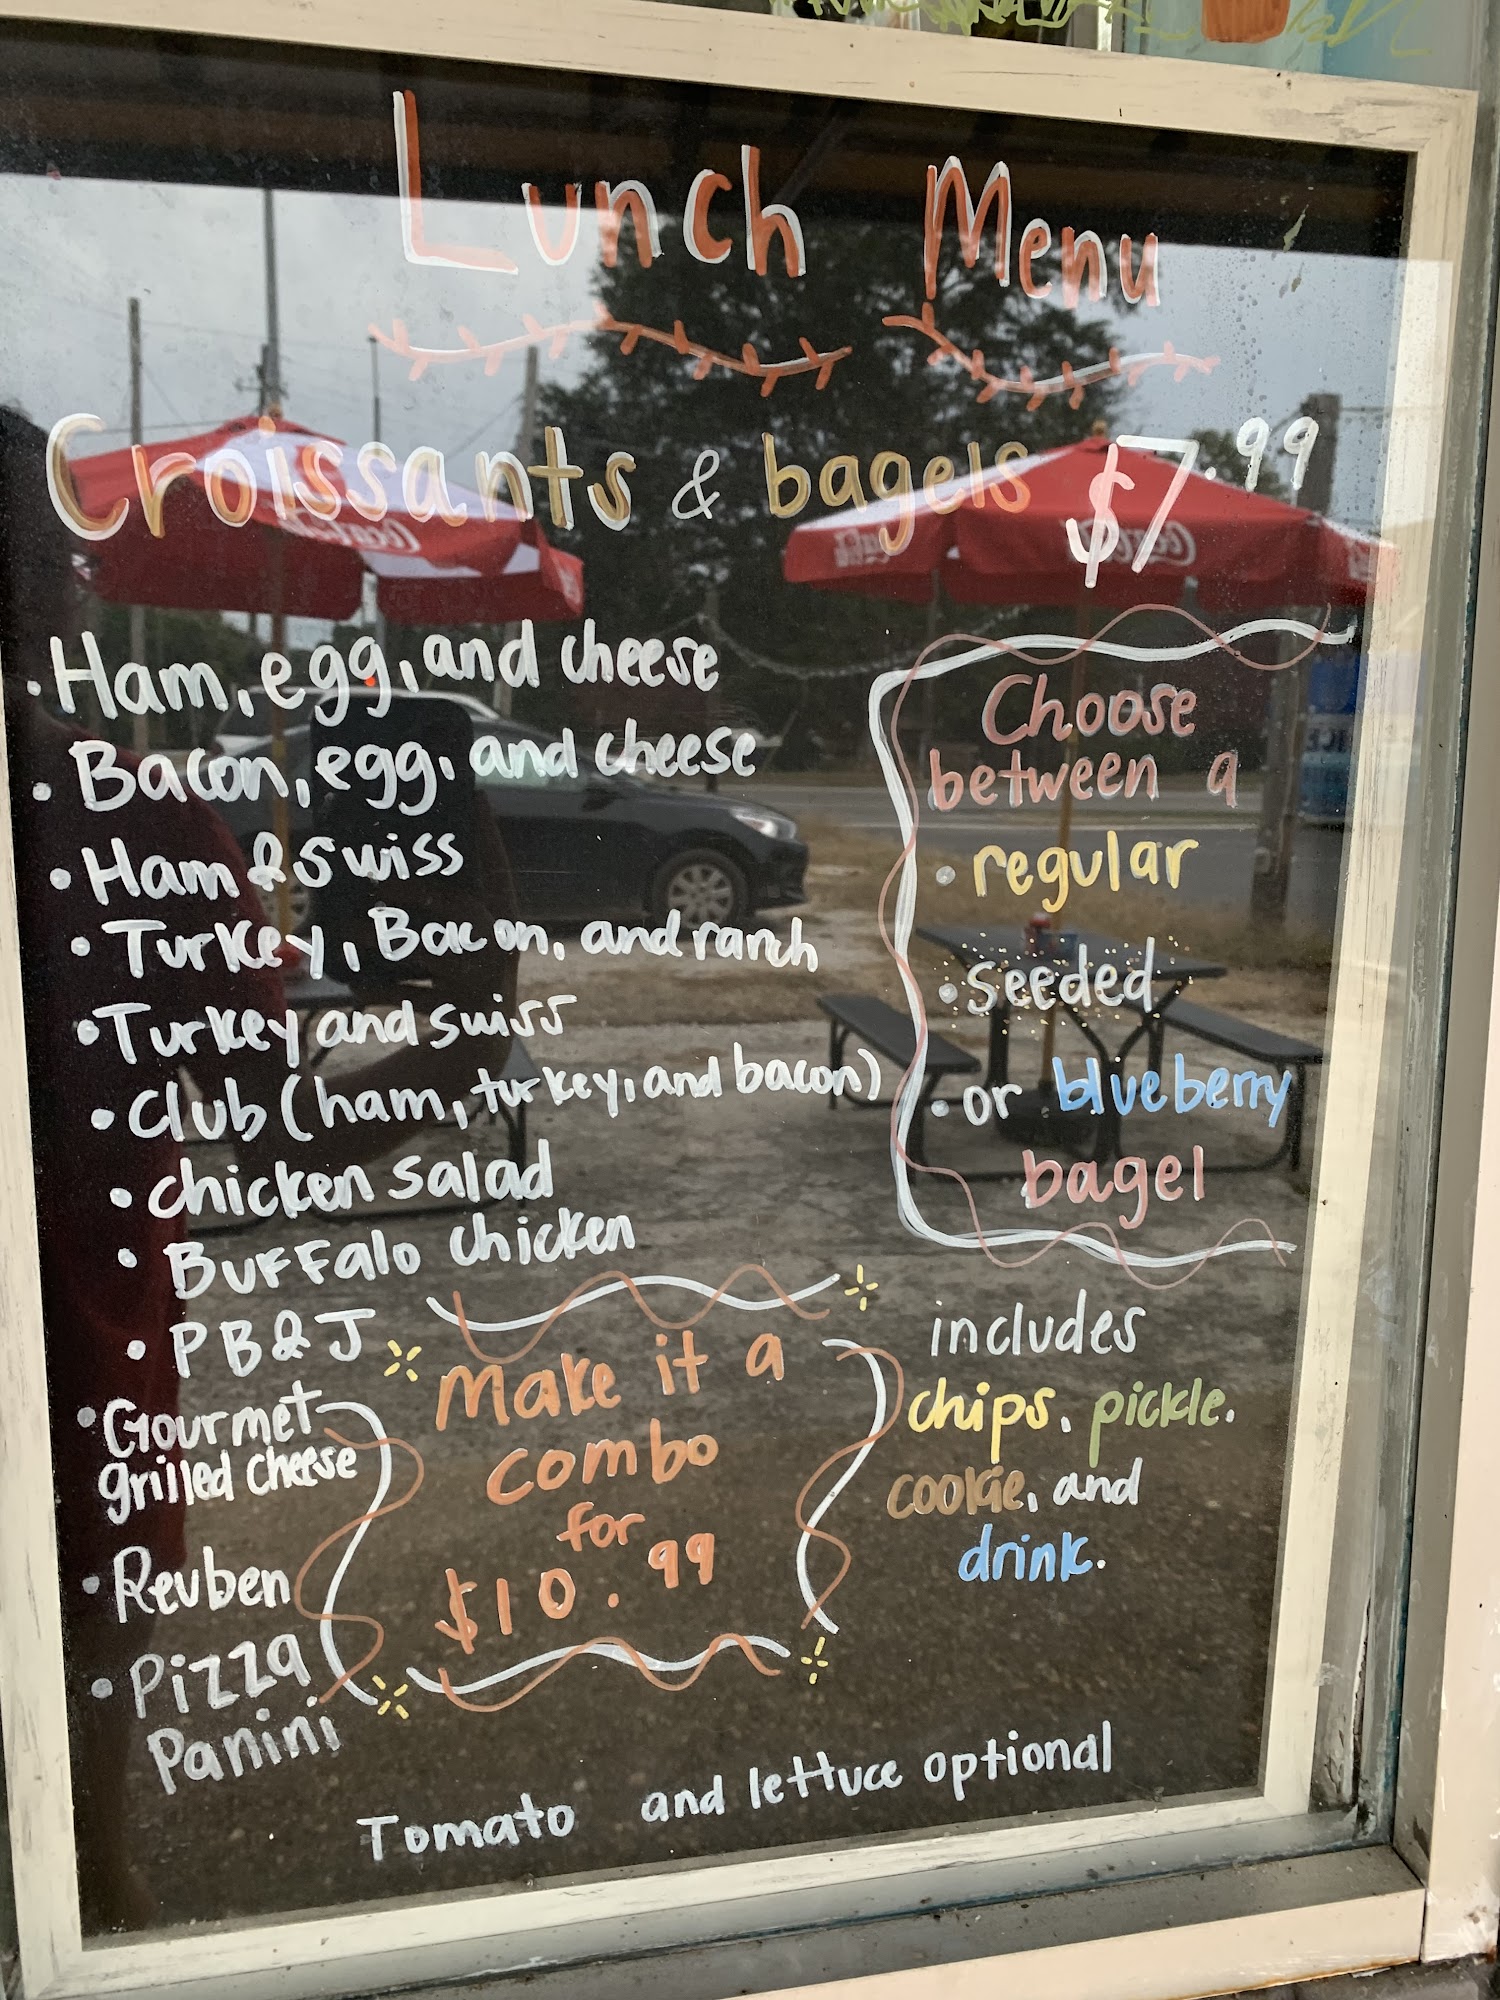 Lunch Menu
Croissants & bagels $7.99
• Ham, egg, and cheese
• Bacon, egg, and cheese
• Ham & swiss
• Turkey, Bacon, and ranch
• Turkey and swiss
• Club (ham, turkey, and bacon)
• chicken salad
• Buffalo chicken
• PB&J
• Gourmet
grilled cheese
• Reuben
• Pizza
Panini
Choose
between a
• regular
• seeded
• or blueberry
bagel
Make it a
combo
for
$10.99
includes
chips, pickle,
cookie, and
drink.
Tomato and lettuce optional
Coca-Cola
Coca-Cola